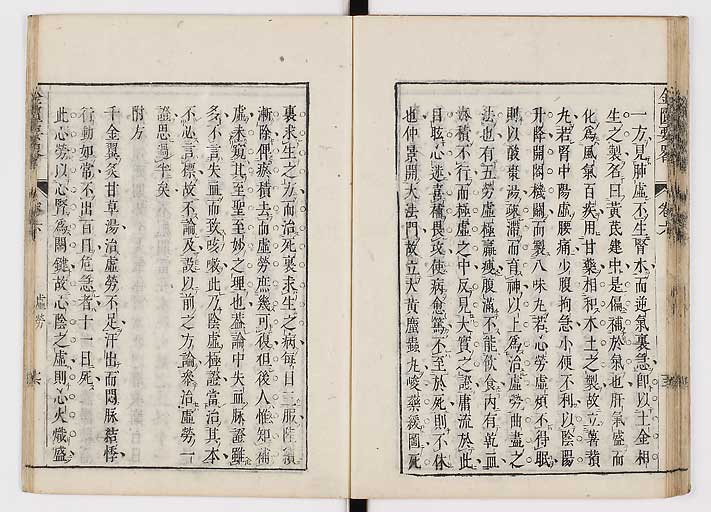 一方見肺虛不生腎水而逆氣裏急卽以土金相
生之製名曰黃芪建中是偏補於氣也肝氣盛而
化爲風氣百疾用甘藥相和木土之製故立薯蕷
丸若腎中陽虛腰痛少腹拘急小便不利以陰陽
升降開闔機關而製八味丸若心勞虛煩不得眠
則以酸棗湯疎潛而育神以上爲治虛勞曲盡之
法也有五勞虛極羸瘦腹滿不能飲食內有乾血
瘀積不行而極虛之中反見大實之證庸流於此
目眩心迷喜補畏攻使病愈篤不至於死則不休
也仲景開大法門故立大黃䗪蟲丸峻藥緩圖死
裏求生之方而治死裏求生之病每日三服陸續
漸除俾瘀積去而虛勞庶幾可復但後人惟知補
虛未窺其至聖至妙之理也葢論中失血脉證雖
多不言失血而致咳嗽此乃陰虛極證當治其本
不必言標故不論及設以前之方論參治虛勞一
證思過半矣
附方
千金翼炙甘草湯治虛勞不足汗出而悶脉結悸
行動如常不出百日危急者十一日死
此心勞以心腎爲關鍵故心陰之虛則心火熾盛
金匱要略
卷六
虛勞